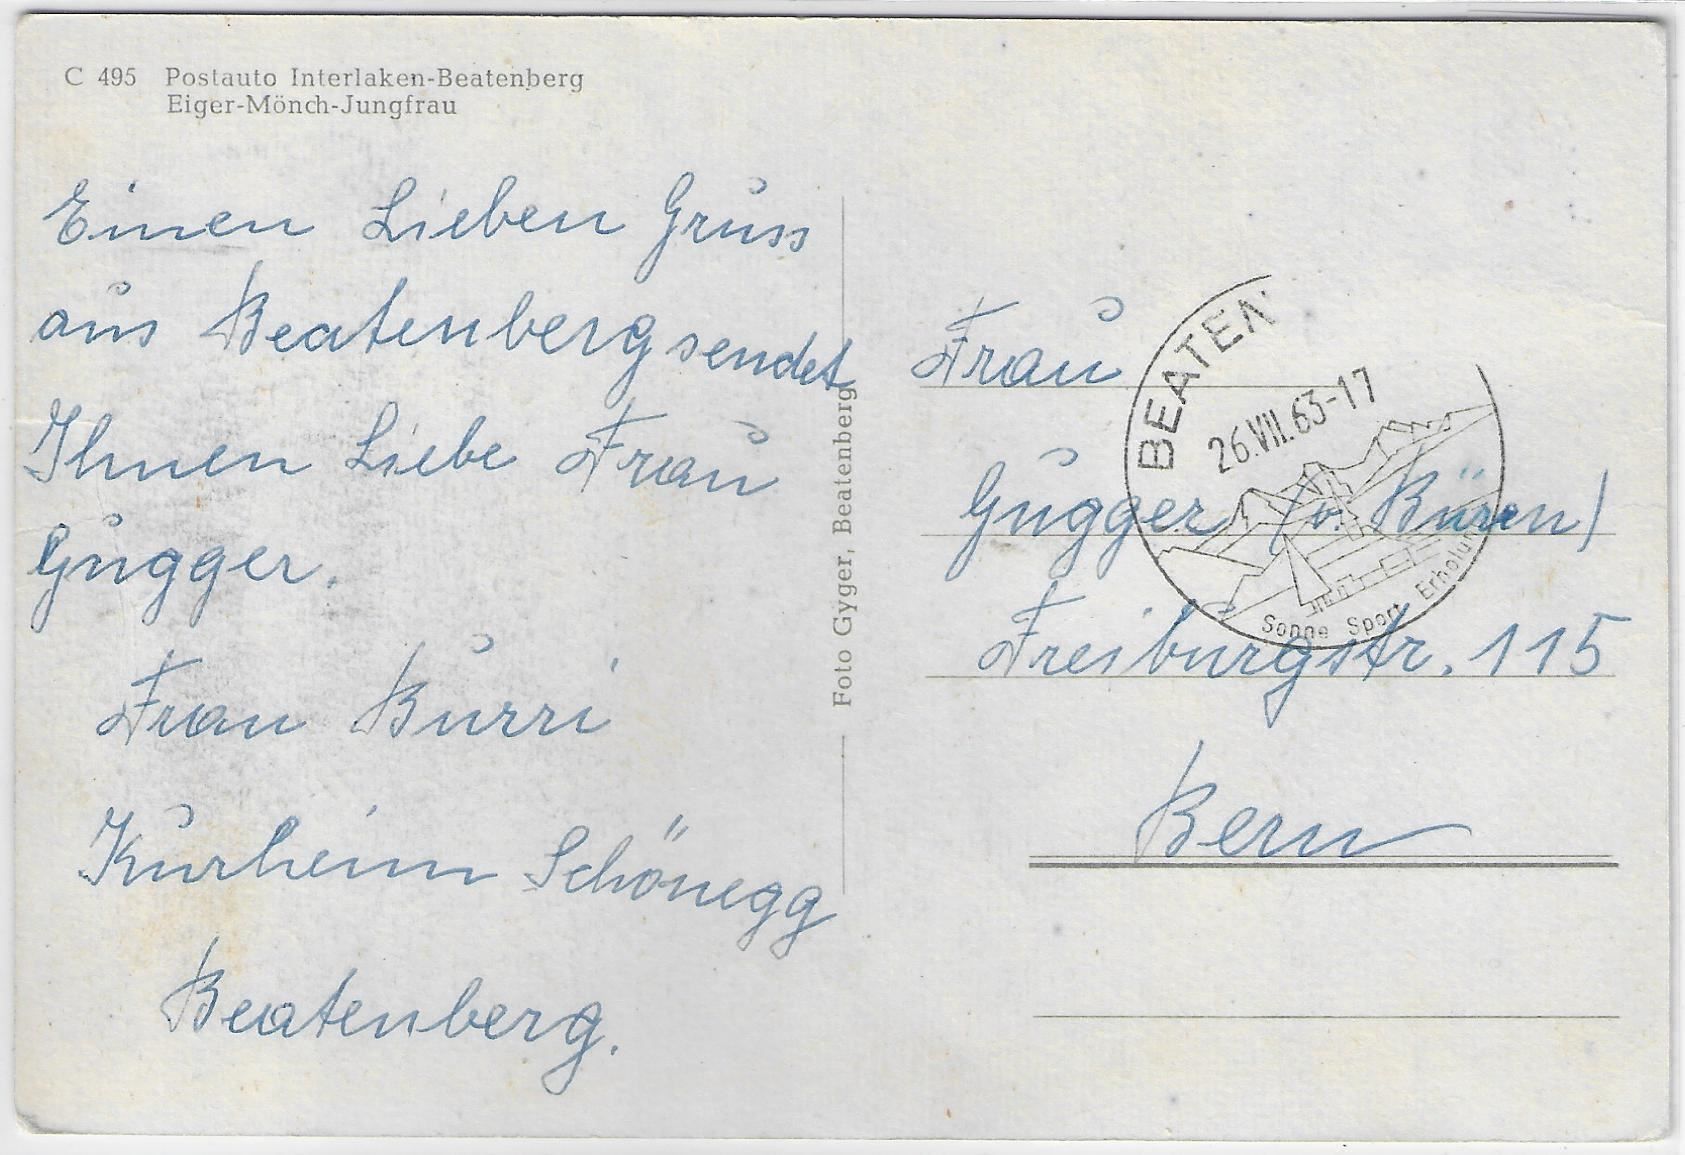 C 495 Postauto Interlaken-Beatenberg
Eiger-Mönch-Jungfrau
Einen Lieben Gruss
aus Beatenberg sendet
Ihnen Liebe Frau
Gugger.
Frau Burri
Kurheim Schönegg
Beatenberg.
Foto Gyger, Beatenberg
BEATEN
26.VII.63-17
Sonne Sport Erholun
Frau
Gugger (v. Büren)
Freiburgstr. 115
Bern